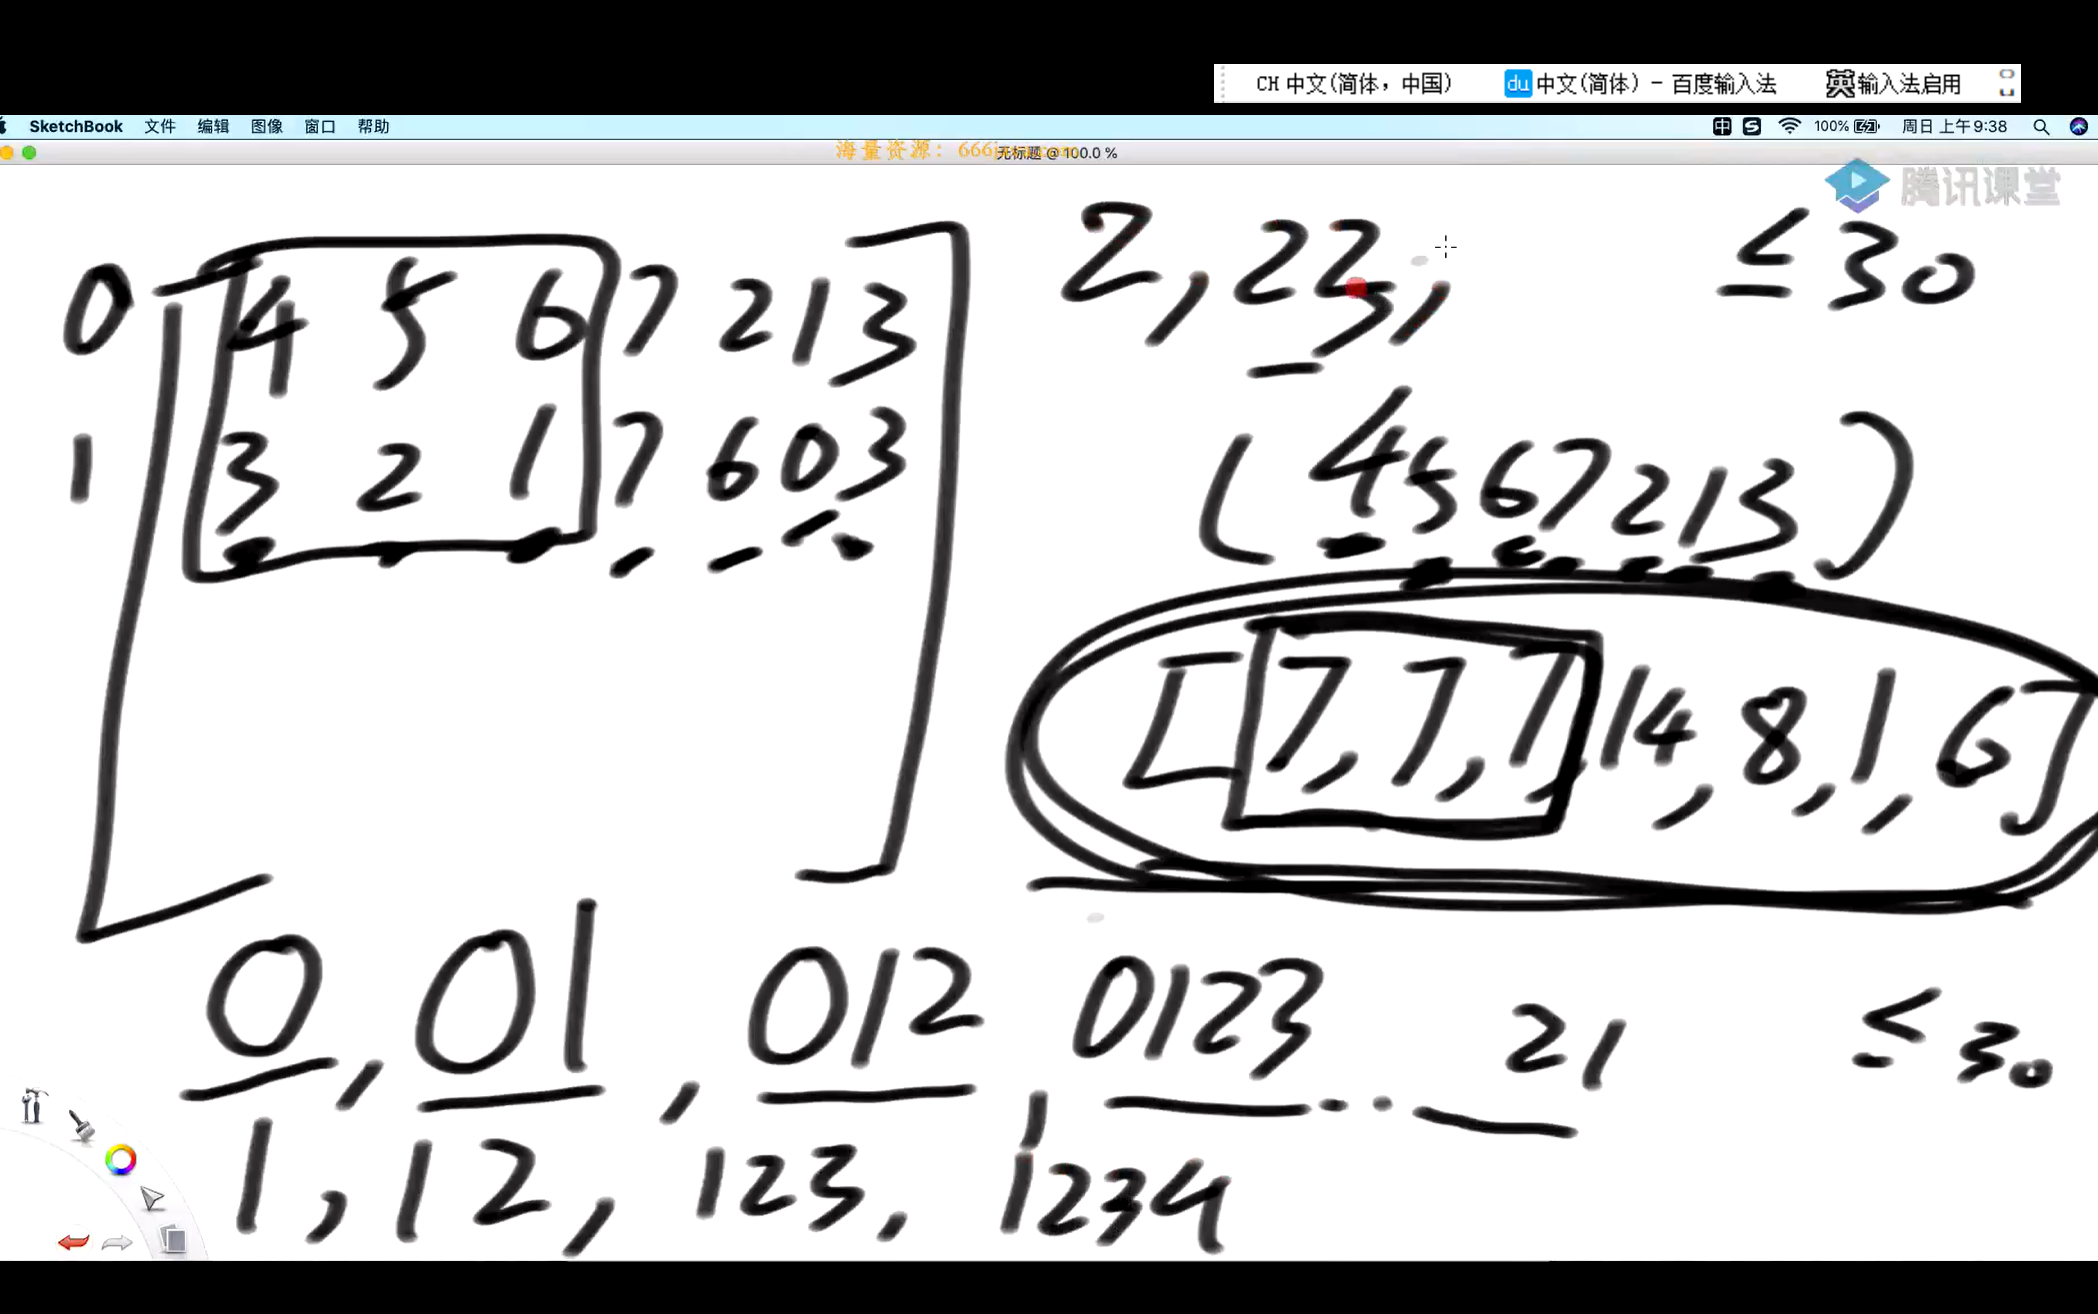 CH 中文(简体，中国) 中文(简体) - 百度输入法 英输入法启用
SketchBook 文件 编辑 图像 窗口 帮助 100% 周日 上午9:38
海量资源：
无标题 @ 100.0 %
腾讯课堂
2, 223, ≤30
0 4 5 6 7 2 1 3
1 3 2 1 7 6 0 3
(4567213)
[7,7,7,14,8,1,6]
0, 01, 012, 0123 ·· 21 ≤30
1, 12, 123, 1234